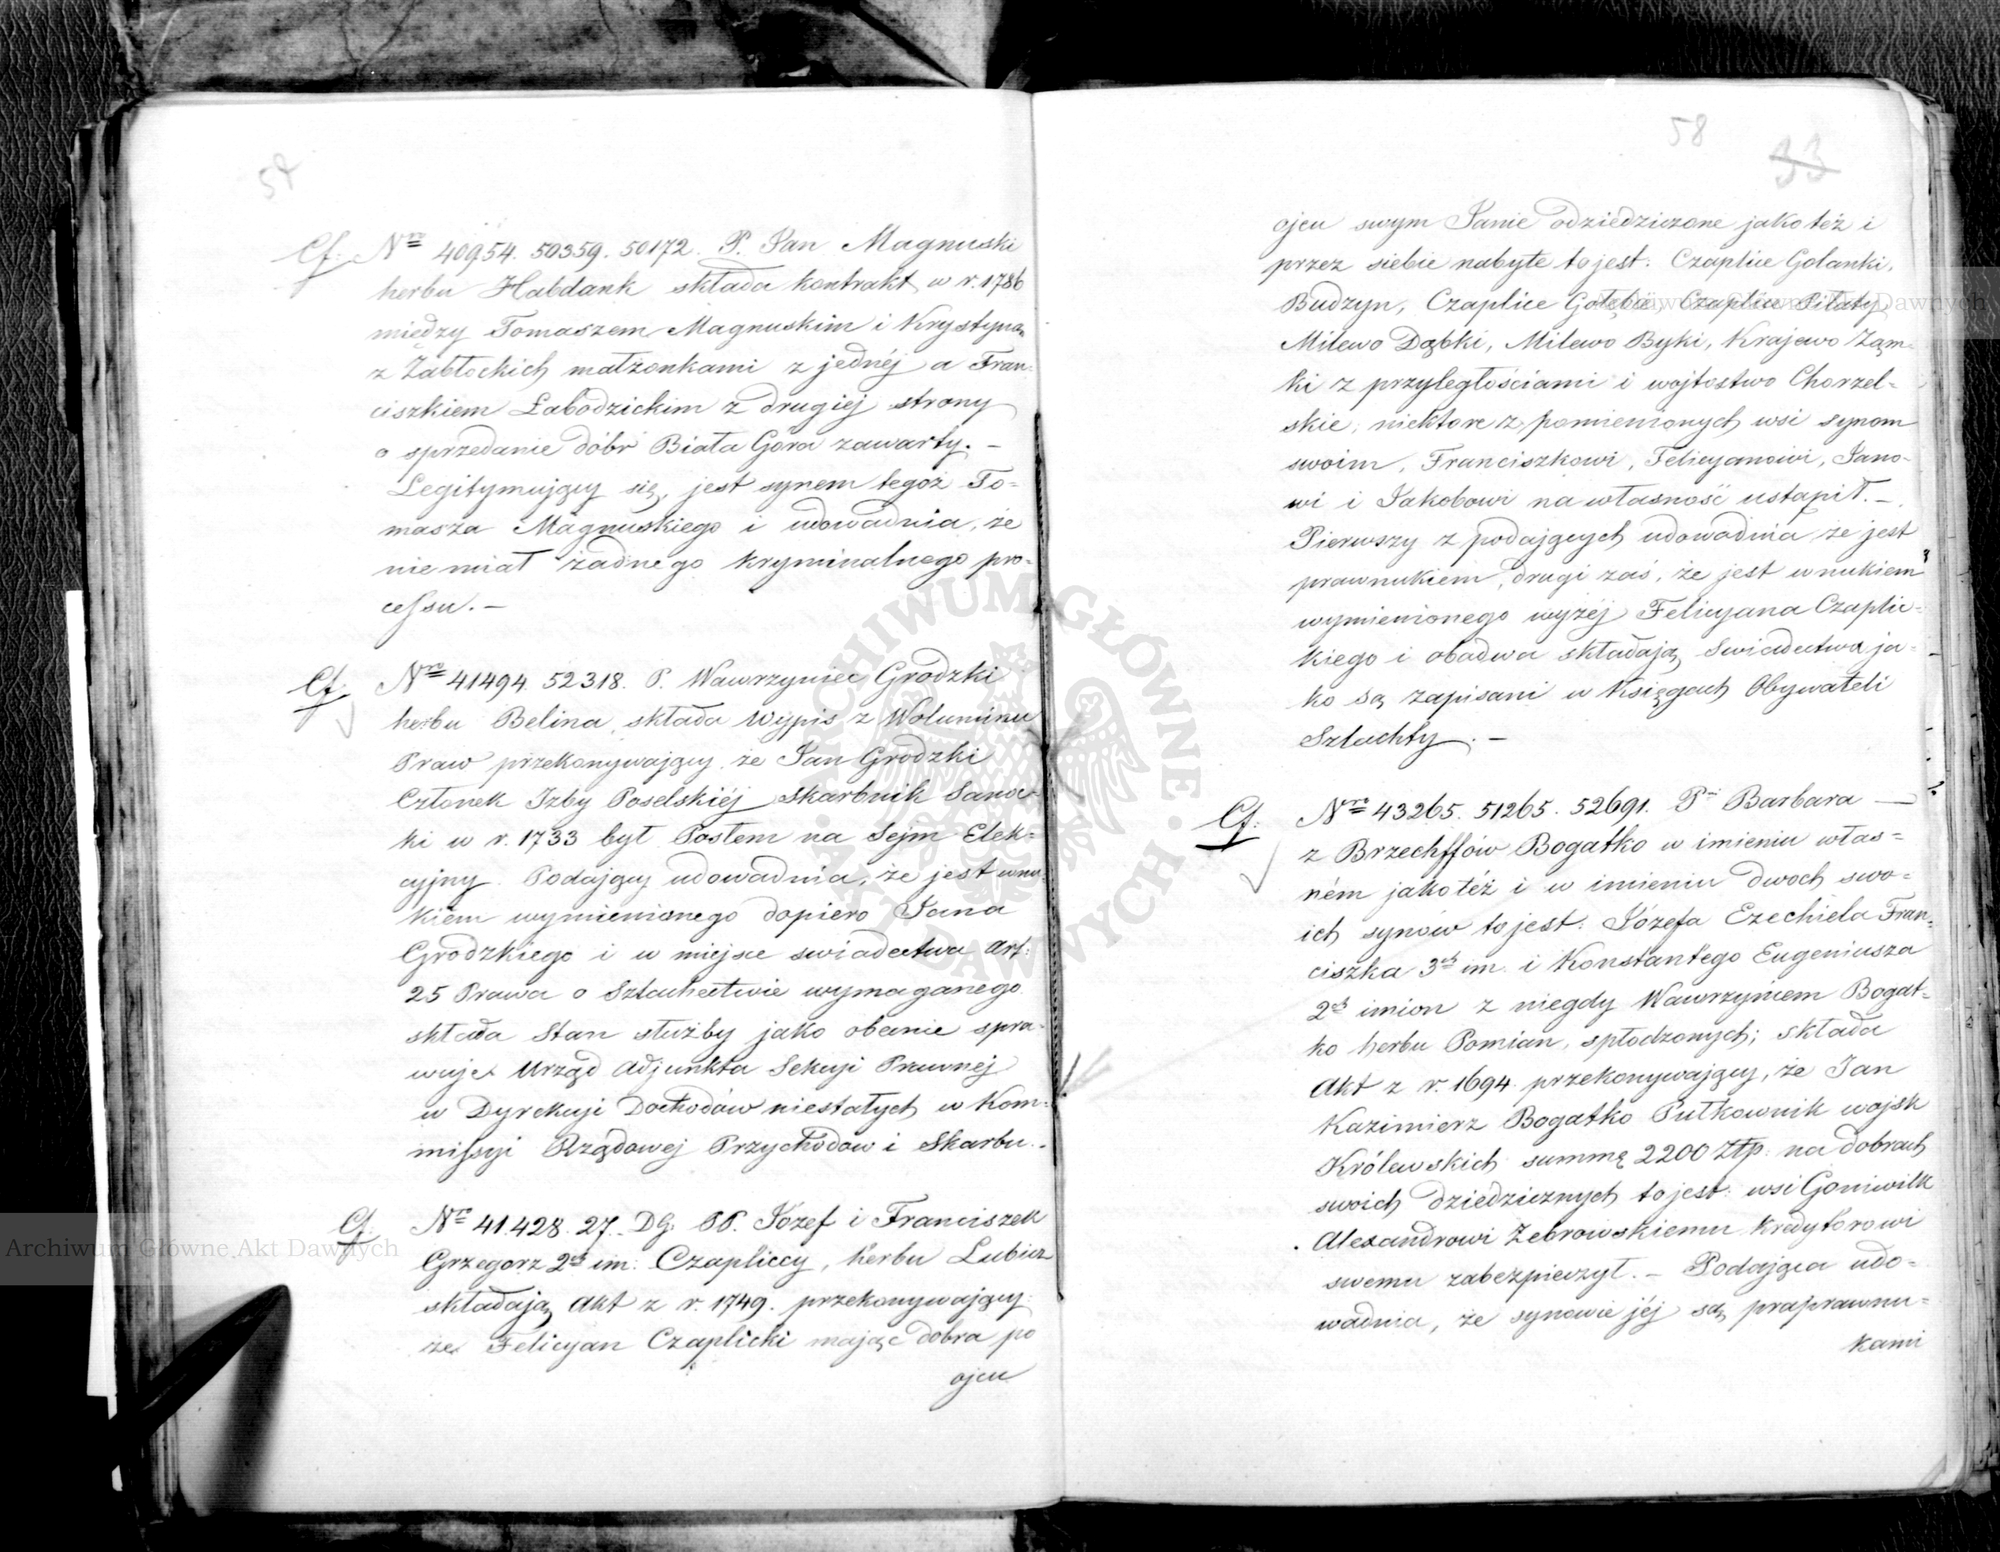 57
Cf. Nro 40954. 50359. 50172. P. Jan Magnuski
herbu Habdank składa kontrakt w r. 1786
między Tomaszem Magnuskim i Krystyną
z Zabłockich małżonkami z jednéj a Fran-
ciszkiem Łabodzickim z drugiej strony
o sprzedanie dóbr Biała Góra zawarty. —
Legitymujący się, jest synem tegoż To=
masza Magnuskiego i udowadnia, że
nie miał żadnego kryminalnego pro-
cessu. —
Cf. Nro 41494. 52318. P. Wawrzyniec Grodzki
herbu Belina, składa Wypis z Woluminu
Praw przekonywający że Jan Grodzki
Członek Izby Poselskiéj Skarbnik Sanoc-
ki w r. 1733 był Posłem na Sejm Elek=
cyjny. Podający udowadnia, że jest wnu-
kiem wymienionego dopiero Jana
Grodzkiego i w miejsce swiadectwa Art:
25 Prawa o Szlachectwie wymaganego
składa Stan służby jako obecnie spra-
wuje Urząd Adjunkta Sekcyi Prawnéj
w Dyrekcyi Dochodów niestałych w Kom=
missyi Rządowej Przychodów i Skarbu. -
Cf. Nro 41.428. 27. DG. PP. Józef i Franciszek
Grzegorz 2ch im: Czapliccy, herbu Lubicz
składają Akt z r. 1749. przekonywający:
że Felicyan Czaplicki mając dobra po
ojcu
58
33
ojcu swym Janie odziedziczone jako też i
przez siebie nabyte to jest: Czaplice Golanki,
Budzyn, Czaplice Gołębie, Czaplice Piłaty,
Milewo Dąbki, Milewo Byki, Krajewo Zam-
ki z przyległościami i wojtostwo Chorzel=
skie, niektore z pomienionych wsi synom
swoim, Franciszkowi, Felicyanowi, Jano-
wi i Jakobowi na własność ustąpił. —
Pierwszy z podających udowadnia że jest
prawnukiem, drugi zaś, że jest wnukiem
wymienionego wyżéj Felicyana Czaplic=
kiego i obadwa składają Swiadectwa ja-
ko są zapisani w Księgach Obywateli
Szlachty. —
Cf. Nro 43265. 51265. 52691. Pni Barbara —
z Brzechffów Bogatko w imieniu włas=
ném jako też i w imieniu dwóch swo=
ich synów to jest: Józefa Ezechiela Fran=
ciszka 3ch im. i Konstantego Eugeniusza
2ch imion z niegdy Wawrzyńcem Bogat=
ko herbu Pomian, spłodzonych; składa
Akt z r. 1694 przekonywający, że Jan
Kazimierz Bogatko Pułkownik wojsk
Królewskich summę 2200 Złp: na dobrach
swoich dziedzicznych to jest: wsi Goniwilk
Alexandrowi Żebrowskiemu kredytorowi
swemu zabezpieczył. — Podająca udo=
wadnia, że synowie jéj są praprawnu=
kami
ARCHIWUM GŁÓWNE AKT DAWNYCH
Archiwum Główne Akt Dawnych
Archiwum Główne Akt Dawnych